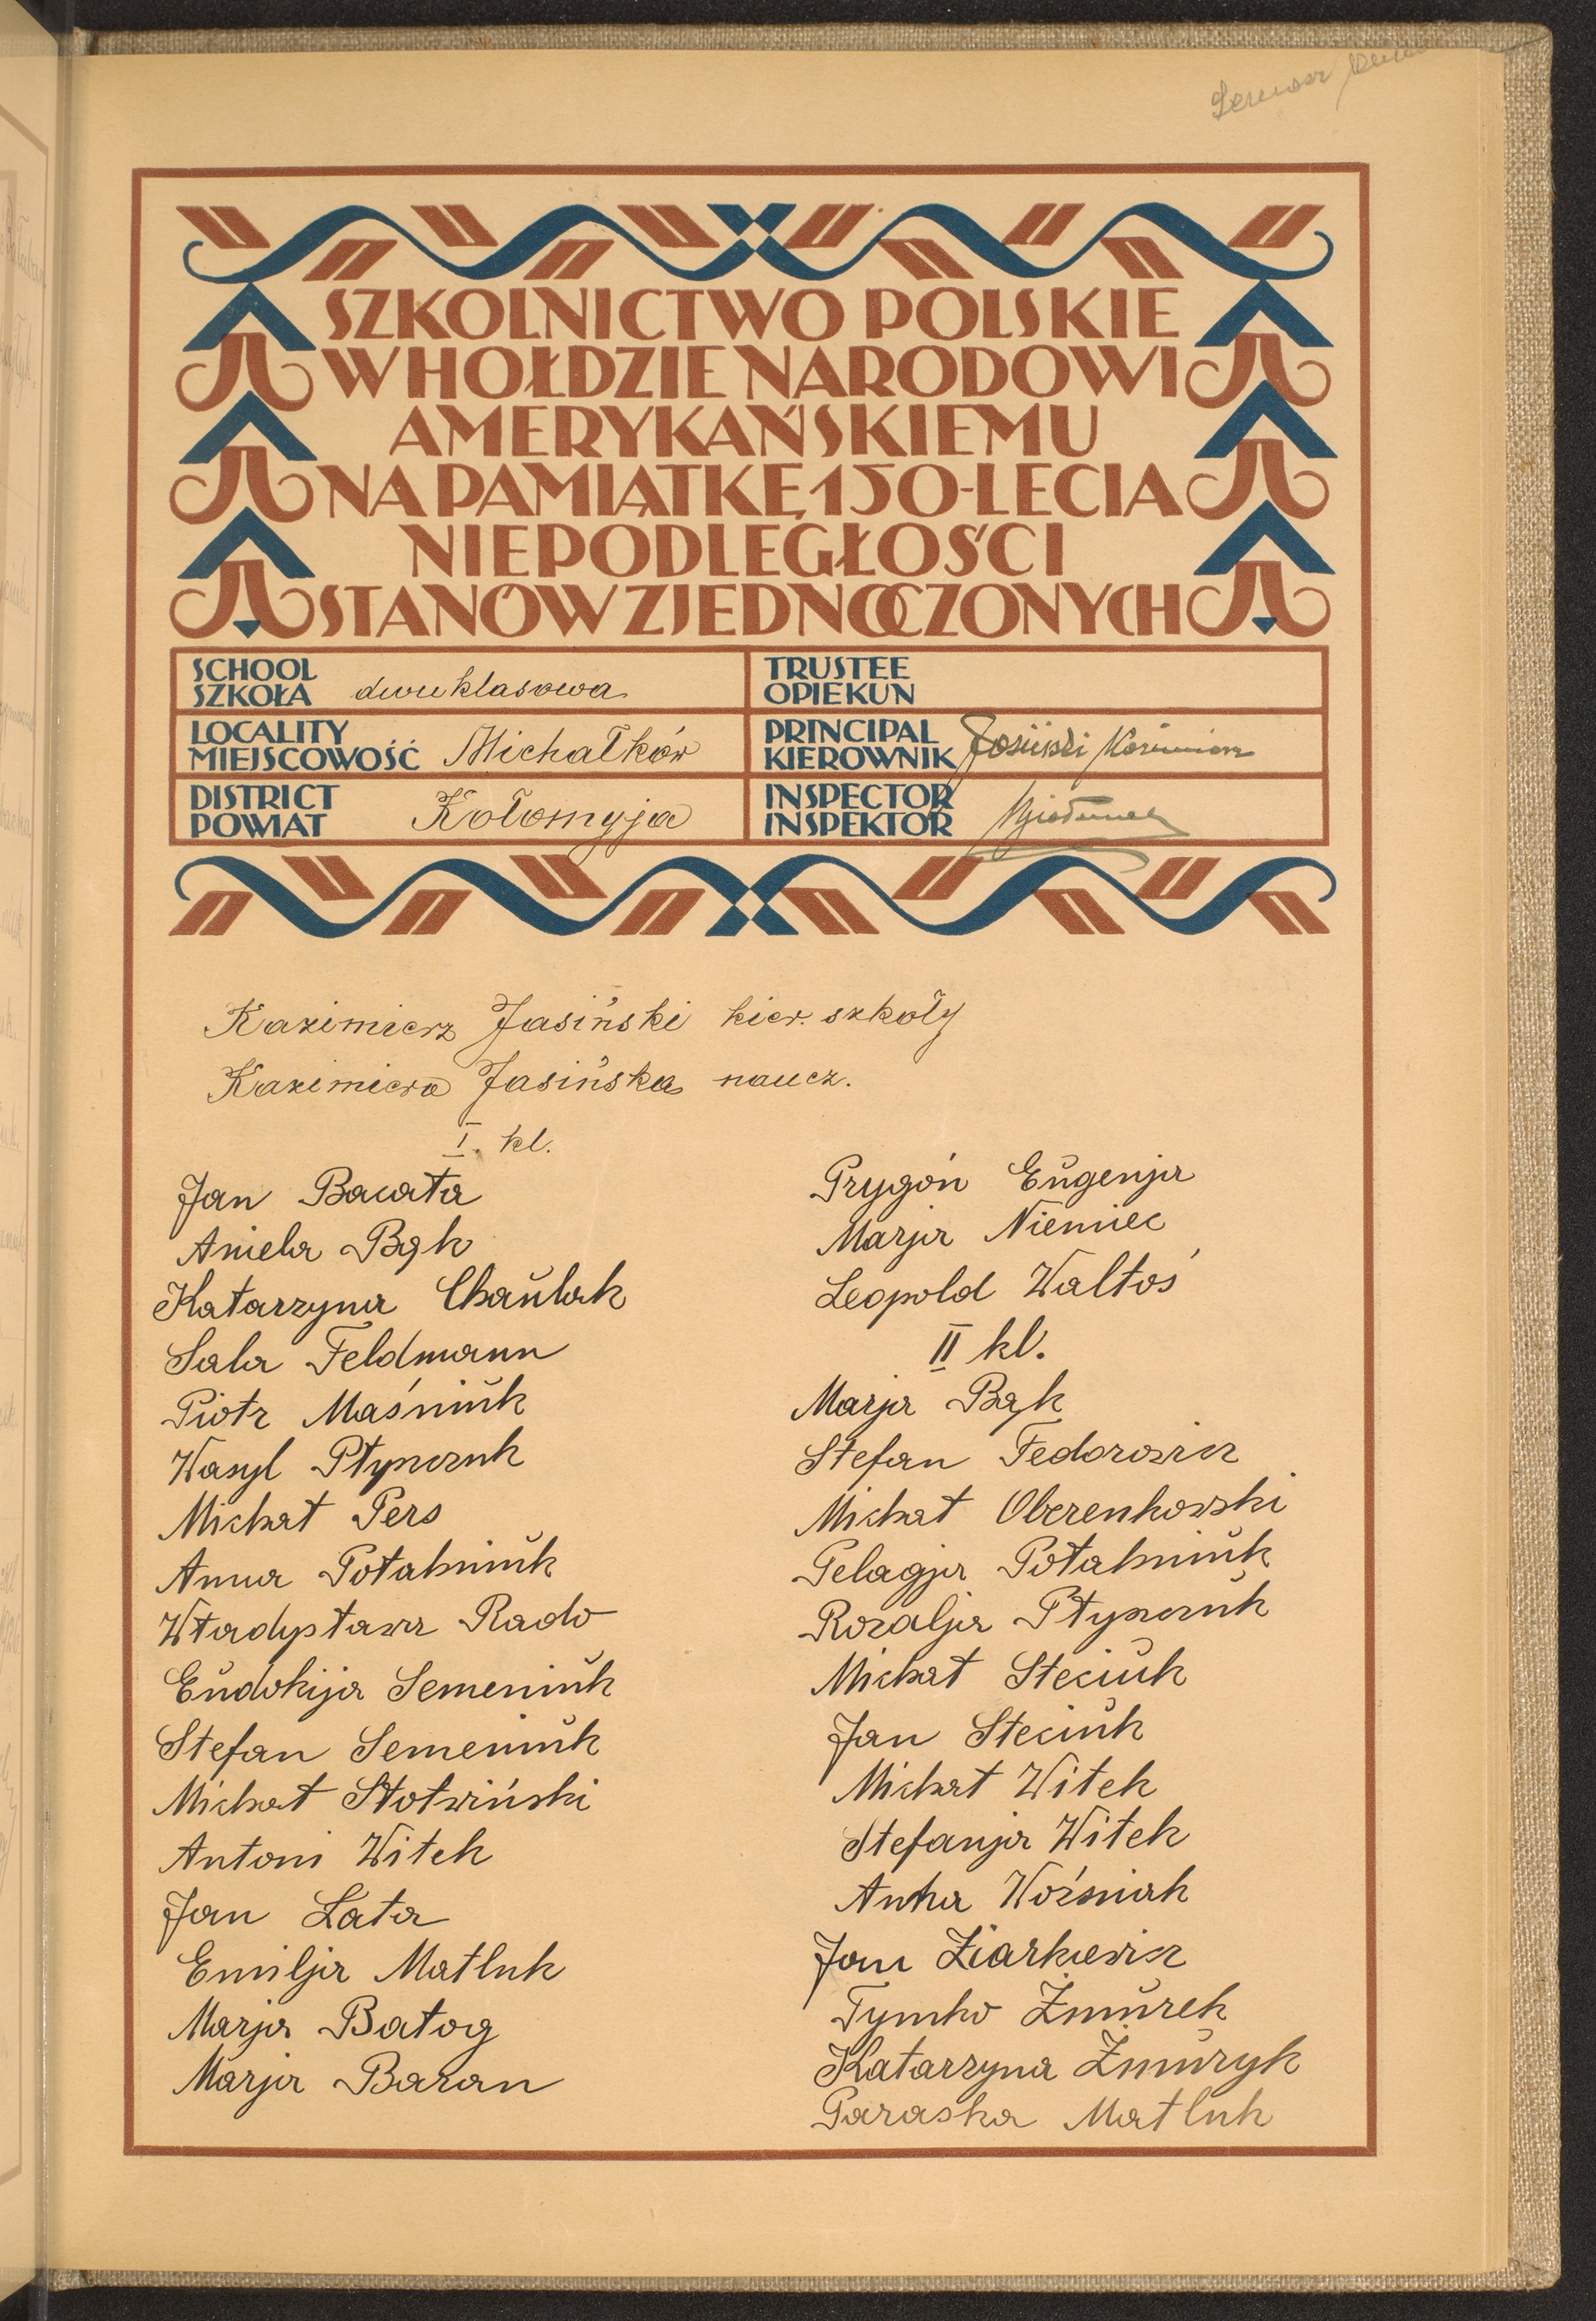 SZKOLNICTWO POLSKIE
W HOŁDZIE NARODOWI
AMERYKAŃSKIEMU
NA PAMIĄTKĘ 150-LECIA
NIEPODLEGŁOŚCI
STANÓW ZJEDNOCZONYCH
SCHOOL
SZKOŁA dwuklasowa
LOCALITY
MIEJSCOWOŚĆ Michałków
DISTRICT
POWIAT Kołomyja
TRUSTEE
OPIEKUN
PRINCIPAL
KIEROWNIK Jasiński Kazimierz
INSPECTOR
INSPEKTOR
Kazimierz Jasiński kier. szkoły
Kazimiera Jasińska naucz.
I. kl.
Jan Bacata
Aniela Bąk
Katarzyna Chaulak
Sala Feldmann
Piotr Maśniuk
Wasyl Ptyszczuk
Michał Pers
Anna Potabniuk
Władysława Rado
Eudokija Semeniuk
Stefan Semeniuk
Michał Stotwiński
Antoni Witek
Jan Łata
Emilja Matluk
Marja Batog
Marja Baran
Prygon Eugenja
Marja Niemiec
Leopold Waltoś
II kl.
Marja Bąk
Stefan Fedorowicz
Michał Oberenkowski
Pelagja Potabniuk
Rozalja Ptyszczuk
Michał Steciuk
Jan Steciuk
Michał Witek
Stefanja Witek
Anna Woźniak
Jan Ziarkiewicz
Tymko Żmurek
Katarzyna Żmuryk
Paraska Matluk